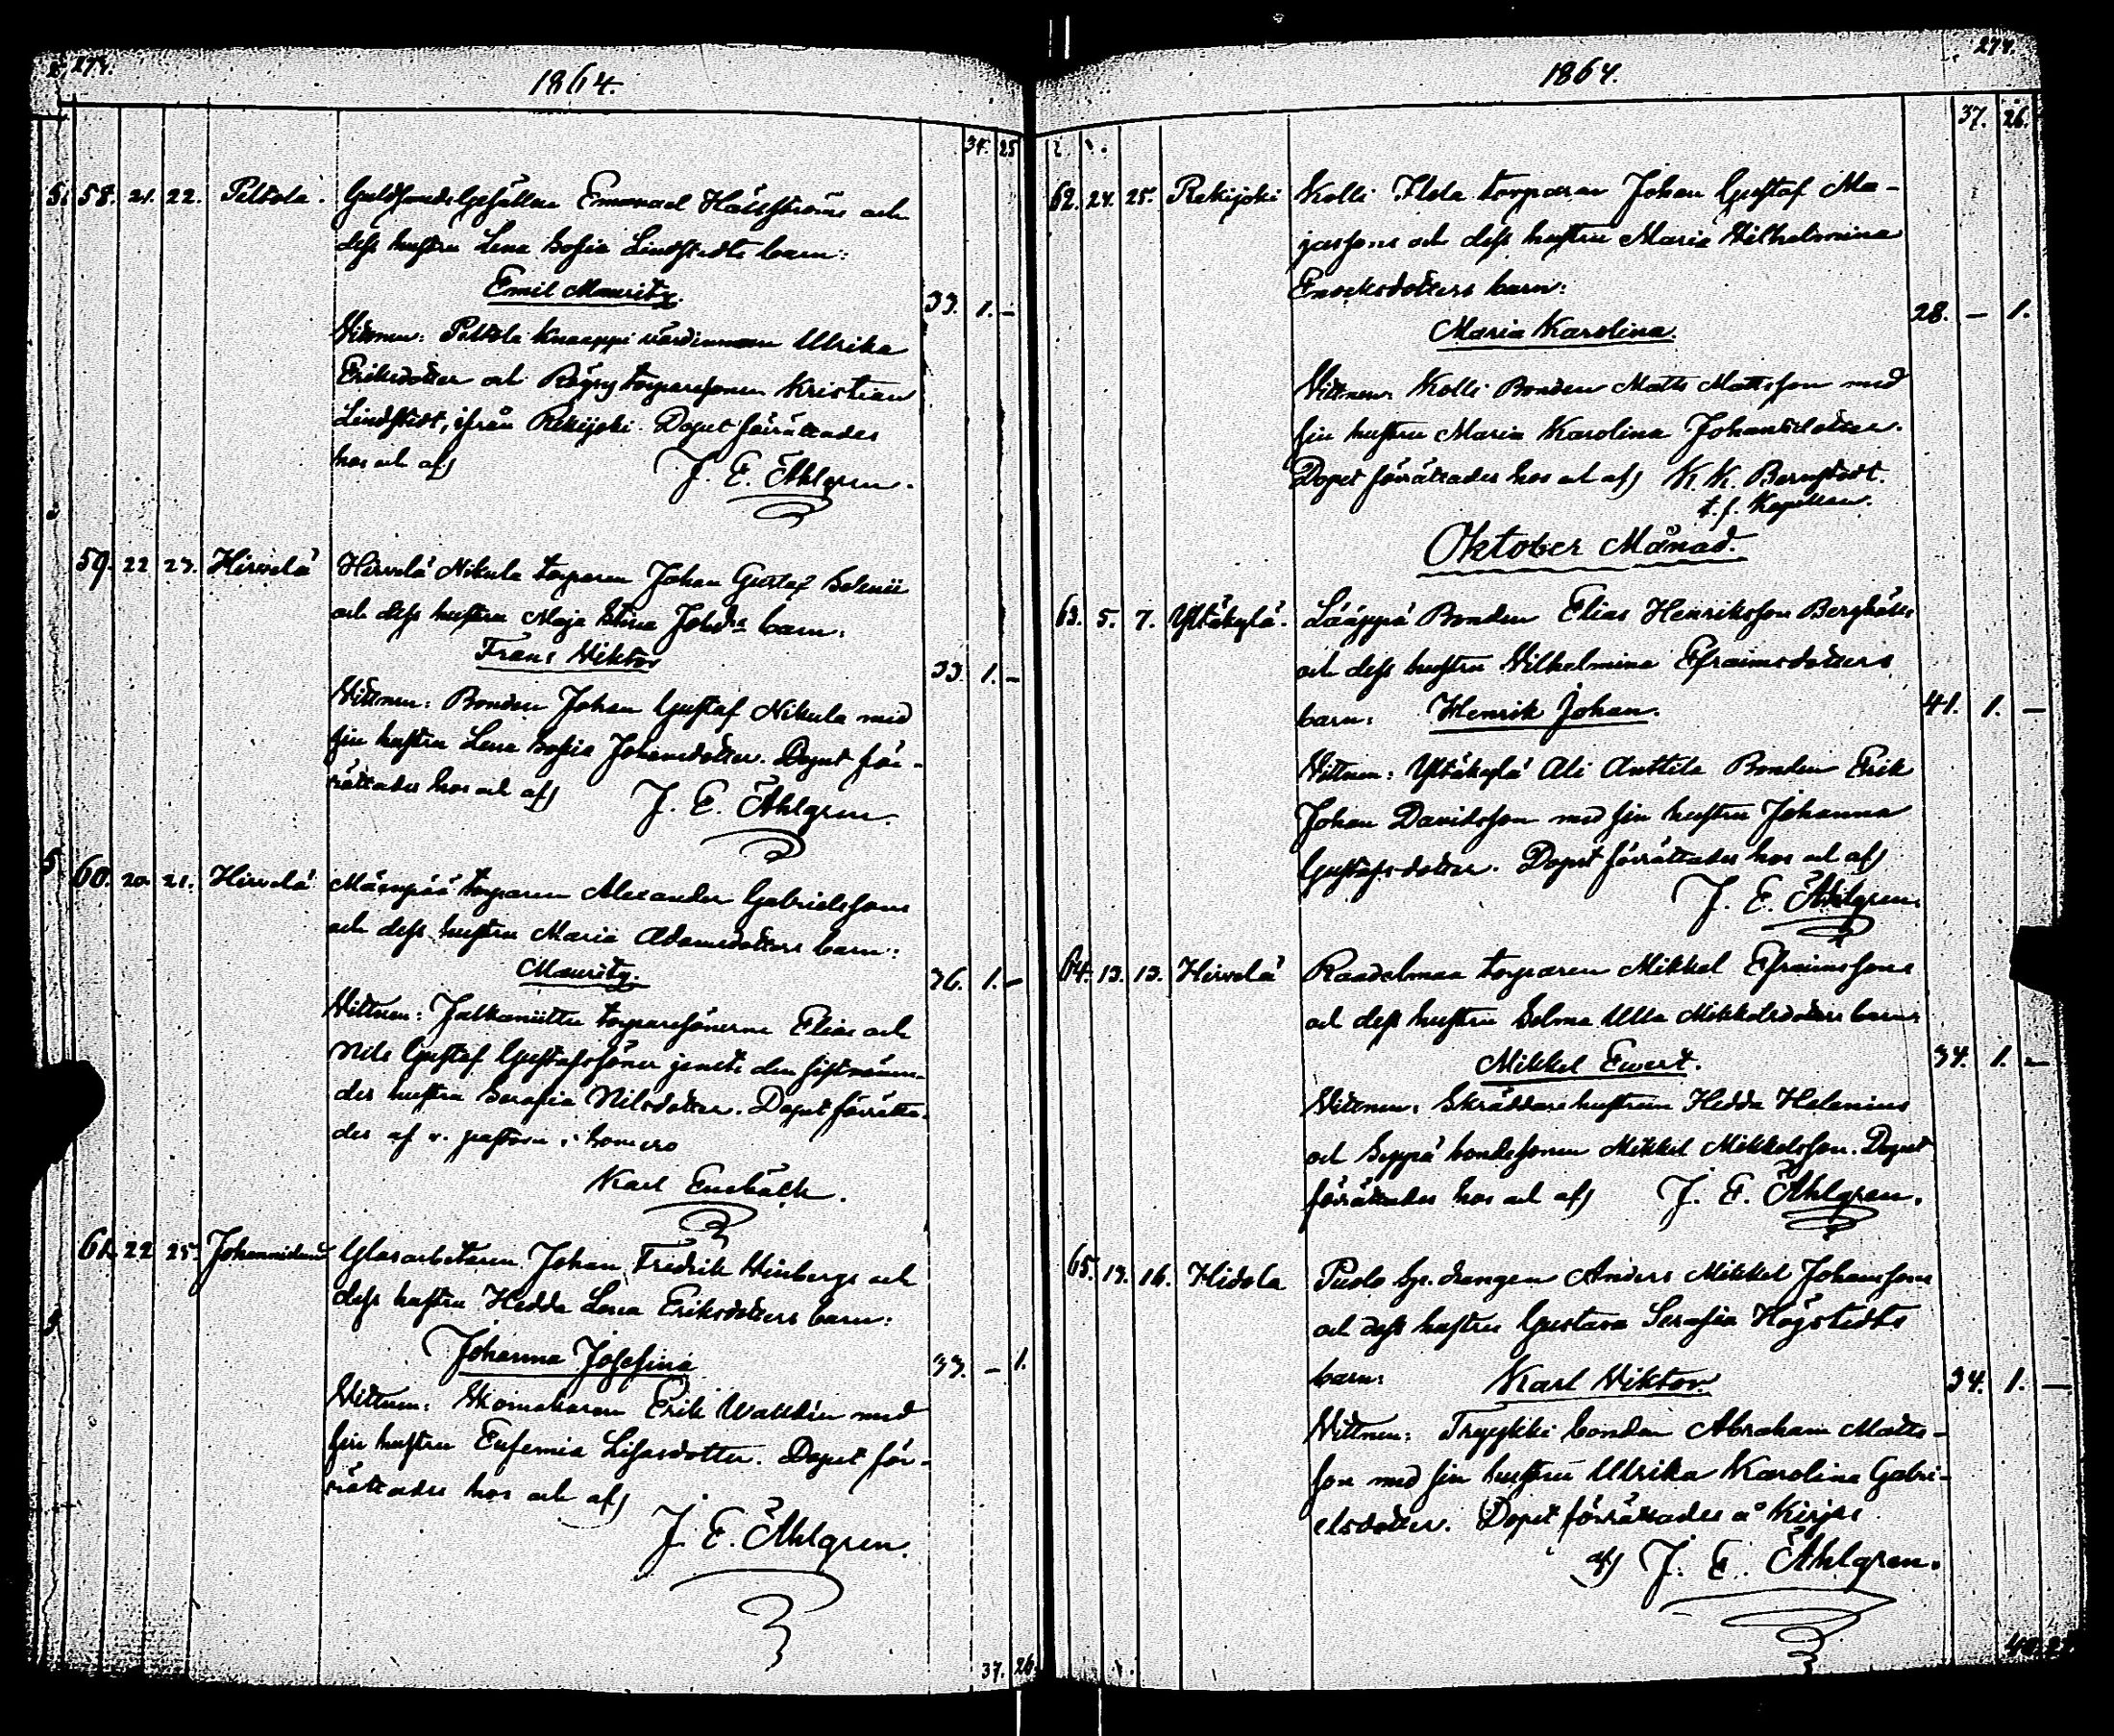 273.
1864.
34. 25
58. 21. 22. Peltola. Guldsmedsgesällen Emanuel Hällströms och
dess hustru Lena Sofia Lindstedts barn:
Emil Mauritz.
33. 1. –
Vittnen: Peltola Knaappi värdinnan Ulrika
Eriksdotter och torparesonen Kristian
Lindstedt, ifrån Rekijoki. Dopet förrättades
hos och af J. E. Åhlgren.
59. 22 23. Hirvelä Hirvelä Nikula torparen Johan Gustaf
och dess hustru Maja Stina Johds barn:
Frans Viktor
33. 1. –
Vittnen: Bonden Johan Gustaf Nikula med
sin hustru Lena Sofia Johansdotter. Dopet för-
rättades hos och af J. E. Åhlgren.
60. 20. 21. Hirvelä Mäenpää torparen Alexander Gabrielssons
och dess hustru Maria Adamsdotters barn:
Mauritz.
36. 1. –
Vittnen: torparesönerna Elias och
Nils Gustaf Gustafssöner jemte den sistnämn-
des hustru Serafia Nilsdotter. Dopet förrätta-
des af v. pastorn i Somero
Karl Enebäck.
61. 22 25. Johannislund Glasarbetaren Johan Fredrik Winbergs och
dess hustru Hedda Lena Eriksdotters barn:
Johanna Josefina
33. – 1.
Vittnen: Skomakaren Erik Walldén med
sin hustru Eufemia Lisasdotter. Dopet för-
rättades hos och af
J. E. Åhlgren.
37. 26
274.
1864.
37. 26.
62. 24. 25. Rekijoki Kolli Ylola torparen Johan Gustaf Ma-
jassons och dess hustru Maria Vilhelmina
Enocksdotters barn:
Maria Karolina.
28. – 1.
Vittnen: Kolli Bonden Matts Mattsson med
sin hustru Maria Karolina Johansdotter.
Dopet förrättades hos och af K. K. Bernstedt.
t. f. Kapellan.
Oktober Månad.
63. 5. 7. Yltäkylä. Lääppä Bonden Elias Henriksson Berghälls
och dess hustru Vilhelmina Efraimsdotters
barn: Henrik Johan.
41. 1. –
Vittnen: Yltäkylä Ali Anttila Bonden Erik
Johan Davidsson med sin hustru Johanna
Gustafsdotter. Dopet förrättades hos och af
J. E. Åhlgren.
64. 13. 13. Hirvelä Raadelmaa torparen Mikkel Efraimssons
och dess hustru Selma Ulla Mikkelsdotters barn:
Mikkel Evert.
34. 1. –
Vittnen: Skräddare hustrun Hedda Helenius
och Seppä bondesonen Mikkel Mikkelsson. Dopet
förrättades hos och af J. E. Åhlgren.
65. 13. 16. Hidola drängen Anders Mikkel Johanssons
och dess hustru Gustava Serafia Högstedts
barn: Karl Viktor.
34. 1. –
Vittnen: Tryykki bonden Abraham Matts-
son med sin hustru Ulrika Karolina Gabri-
elsdotter. Dopet förrättades å Kirjas
af J. E. Åhlgren.